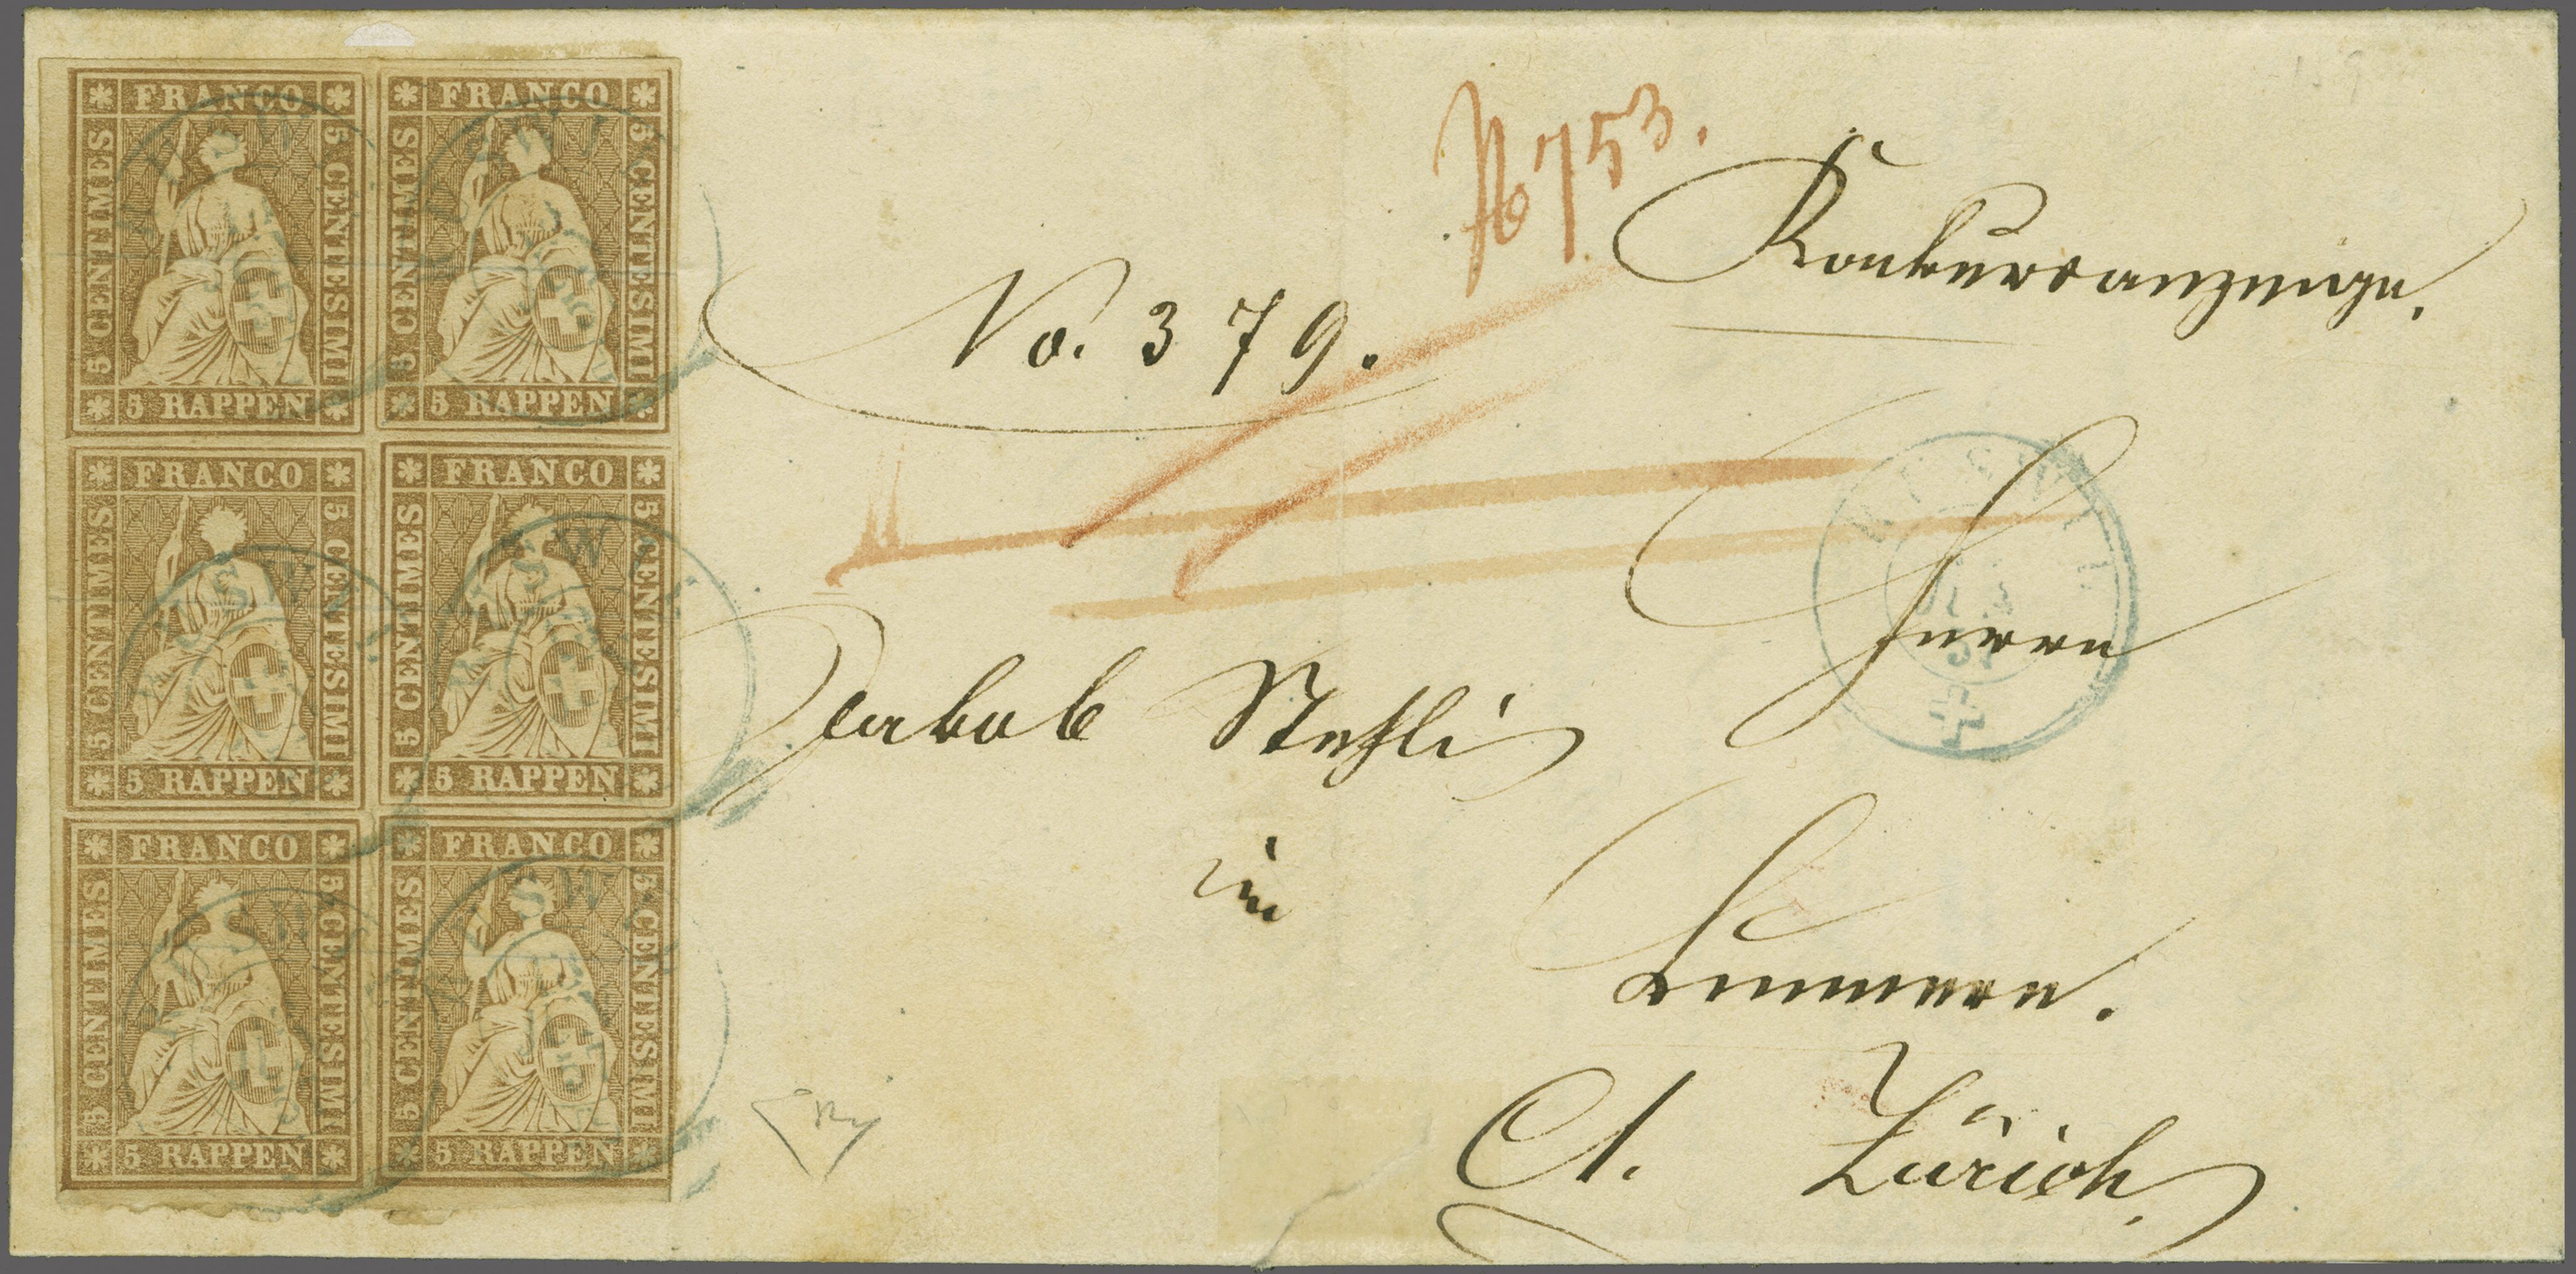 FRANCO
5 CENTIMES
5 CENTESIMI
5 RAPPEN
FRANCO
5 CENTIMES
5 CENTESIMI
5 RAPPEN
FRANCO
5 CENTIMES
5 CENTESIMI
5 RAPPEN
FRANCO
5 CENTIMES
5 CENTESIMI
5 RAPPEN
FRANCO
5 CENTIMES
5 CENTESIMI
5 RAPPEN
FRANCO
5 CENTIMES
5 CENTESIMI
5 RAPPEN
No 753.
Konkursanzeige.
No. 379.
Herrn
Jakob Stehli
in
Lunnern.
Ct. Zürich.